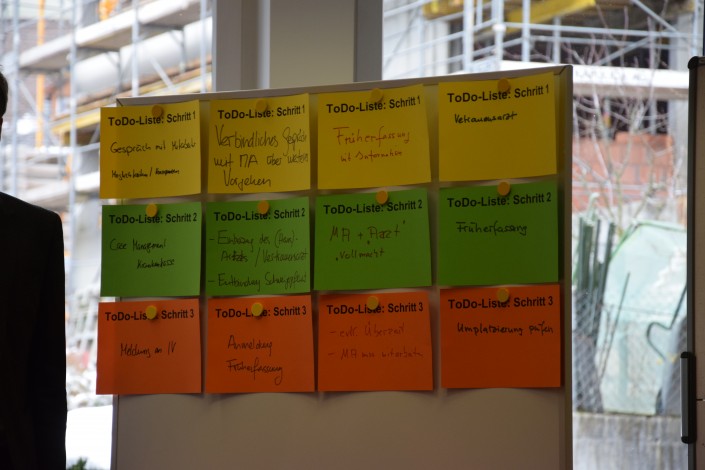 ToDo-Liste: Schritt 1
Gespräch mit
ToDo-Liste: Schritt 1
Verbindliches Gespräch
mit MA über weiteres
Vorgehen
ToDo-Liste: Schritt 1
Früherfassung
mit Information
ToDo-Liste: Schritt 1
Vertrauensarzt
ToDo-Liste: Schritt 2
Case Management
Krankenkasse
ToDo-Liste: Schritt 2
- Einbezug des (Haus)-
Arztes / Vertrauensarzt
- Entbindung Schweigepflicht
ToDo-Liste: Schritt 2
MA + "Arzt"
"Vollmacht
ToDo-Liste: Schritt 2
Früherfassung
ToDo-Liste: Schritt 3
Meldung an IV
ToDo-Liste: Schritt 3
Anmeldung
Früherfassung
ToDo-Liste: Schritt 3
- evtl. Überzeit
- MA
ToDo-Liste: Schritt 3
Umplatzierung prüfen